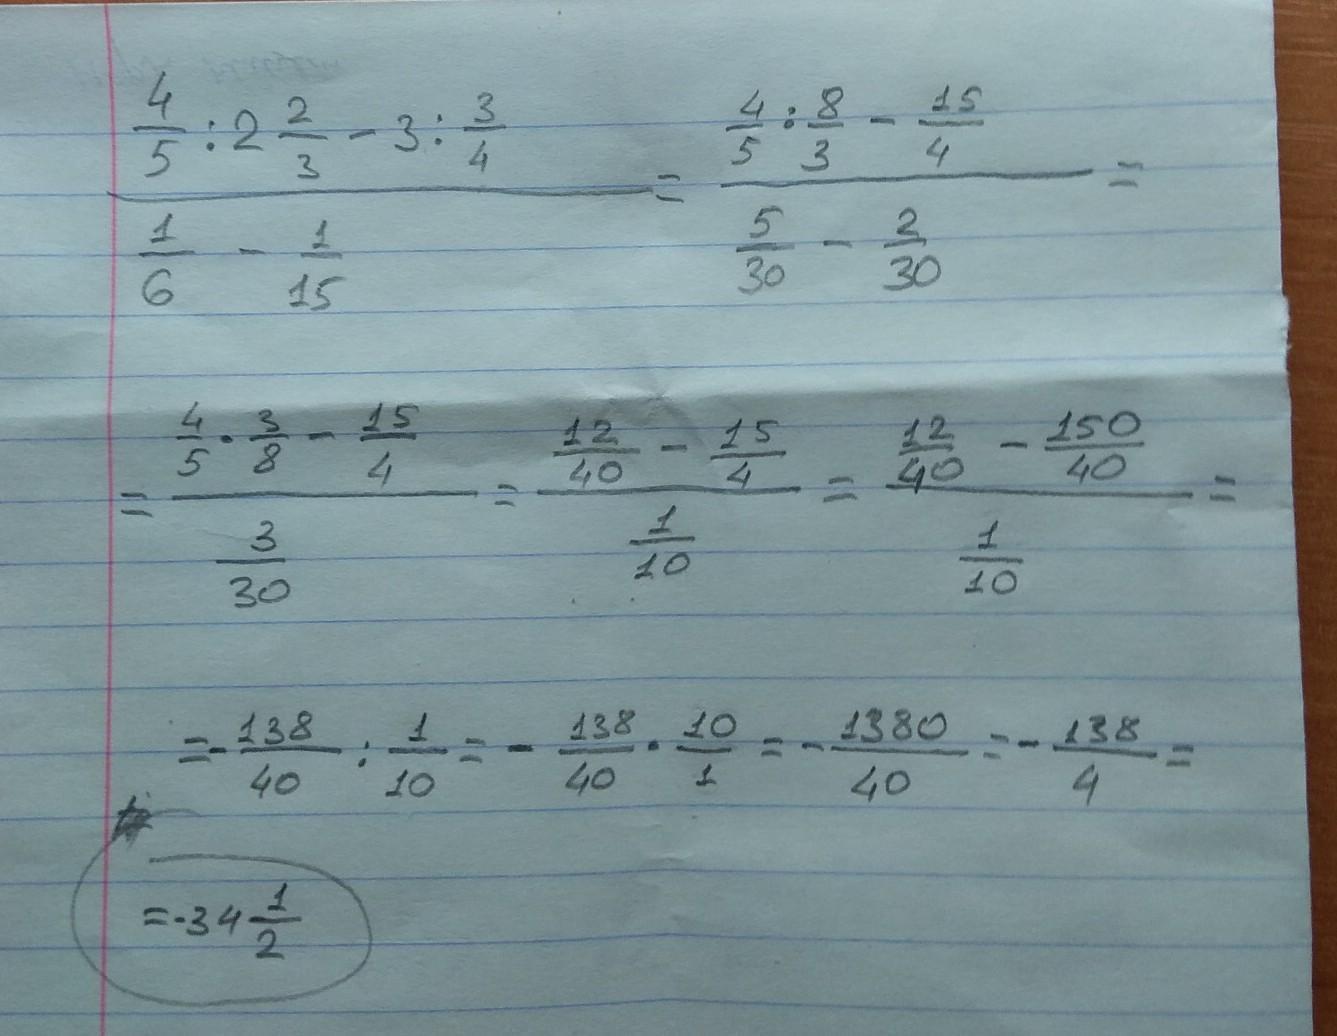 4/5 : 2 2/3 - 3 : 3/4 / 1/6 - 1/15 = 4/5 : 8/3 - 15/4 / 5/30 - 2/30 =
= 4/5 · 3/8 - 15/4 / 3/30 = 12/40 - 15/4 / 1/10 = 12/40 - 150/40 / 1/10 =
= - 138/40 : 1/10 = - 138/40 · 10/1 = - 1380/40 = - 138/4 =
= -34 1/2